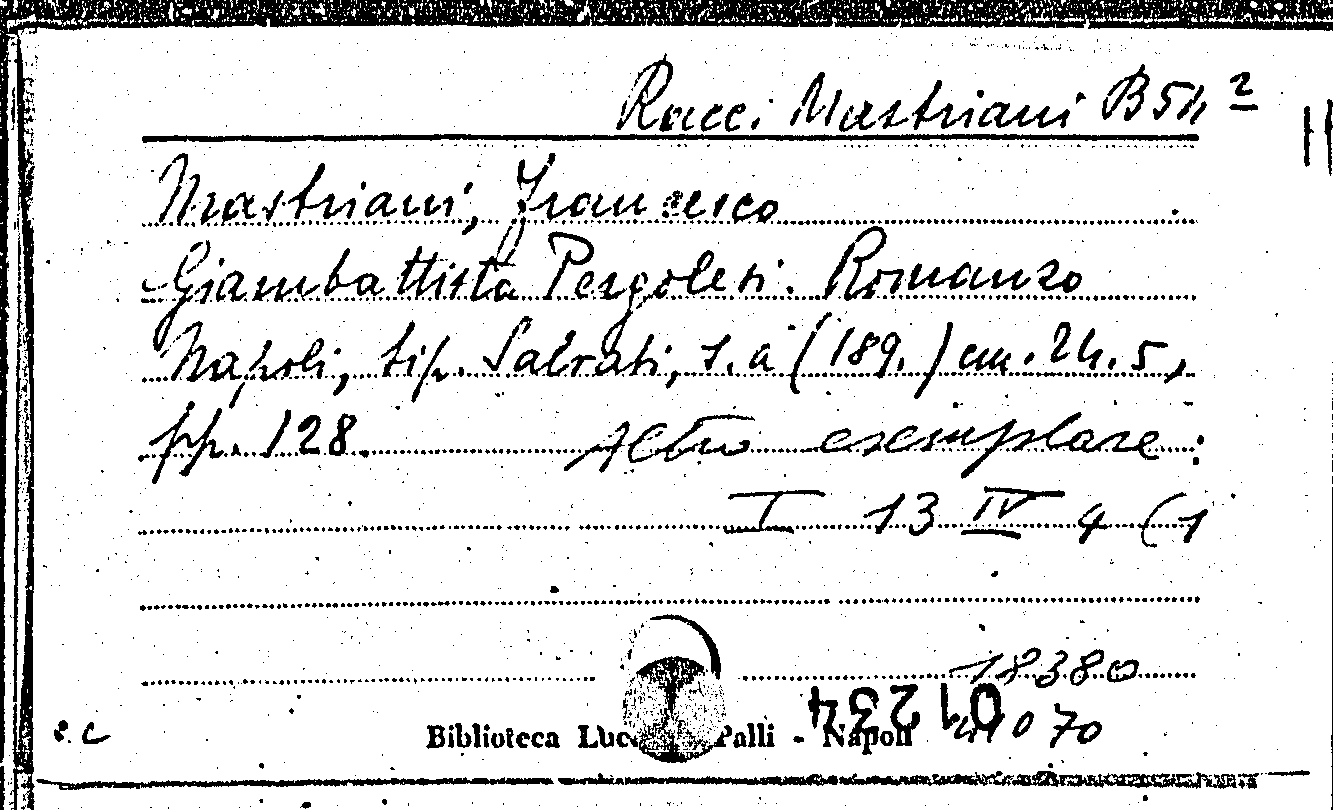 Racc. Mastriani B 54 2
Mastriani, Francesco
Giambattista Pergolesi. Romanzo
Napoli, tip. Salvati, s.a (189.) cm. 24.5,
pp. 128. Altro esemplare:
I 13 IV 4 (1
18380
41070
01234
s.c
Biblioteca Luc Palli - Napoli